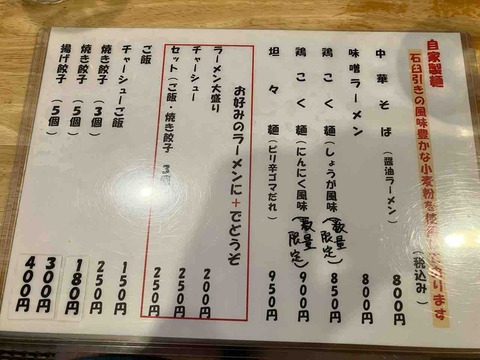 自家製麺
石臼引きの風味豊かな小麦粉を使用しております
(税込み)
中華そば(醤油ラーメン) 800円
味噌ラーメン 800円
鶏こく麺(しょうが風味) (数量限定) 850円
鶏こく麺(にんにく風味) (数量限定) 900円
坦々麺(ピリ辛ゴマだれ) 950円
お好みのラーメンに+でどうぞ
ラーメン大盛り 200円
チャーシュー 250円
セット(ご飯・焼き餃子 3個 250円
ご飯 150円
チャーシューご飯 250円
焼き餃子(3個) 180円
焼き餃子(5個) 300円
揚げ餃子(5個) 400円